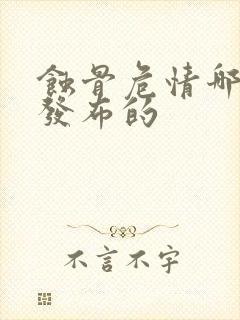 蝕骨危情哪
發布的
不言不字